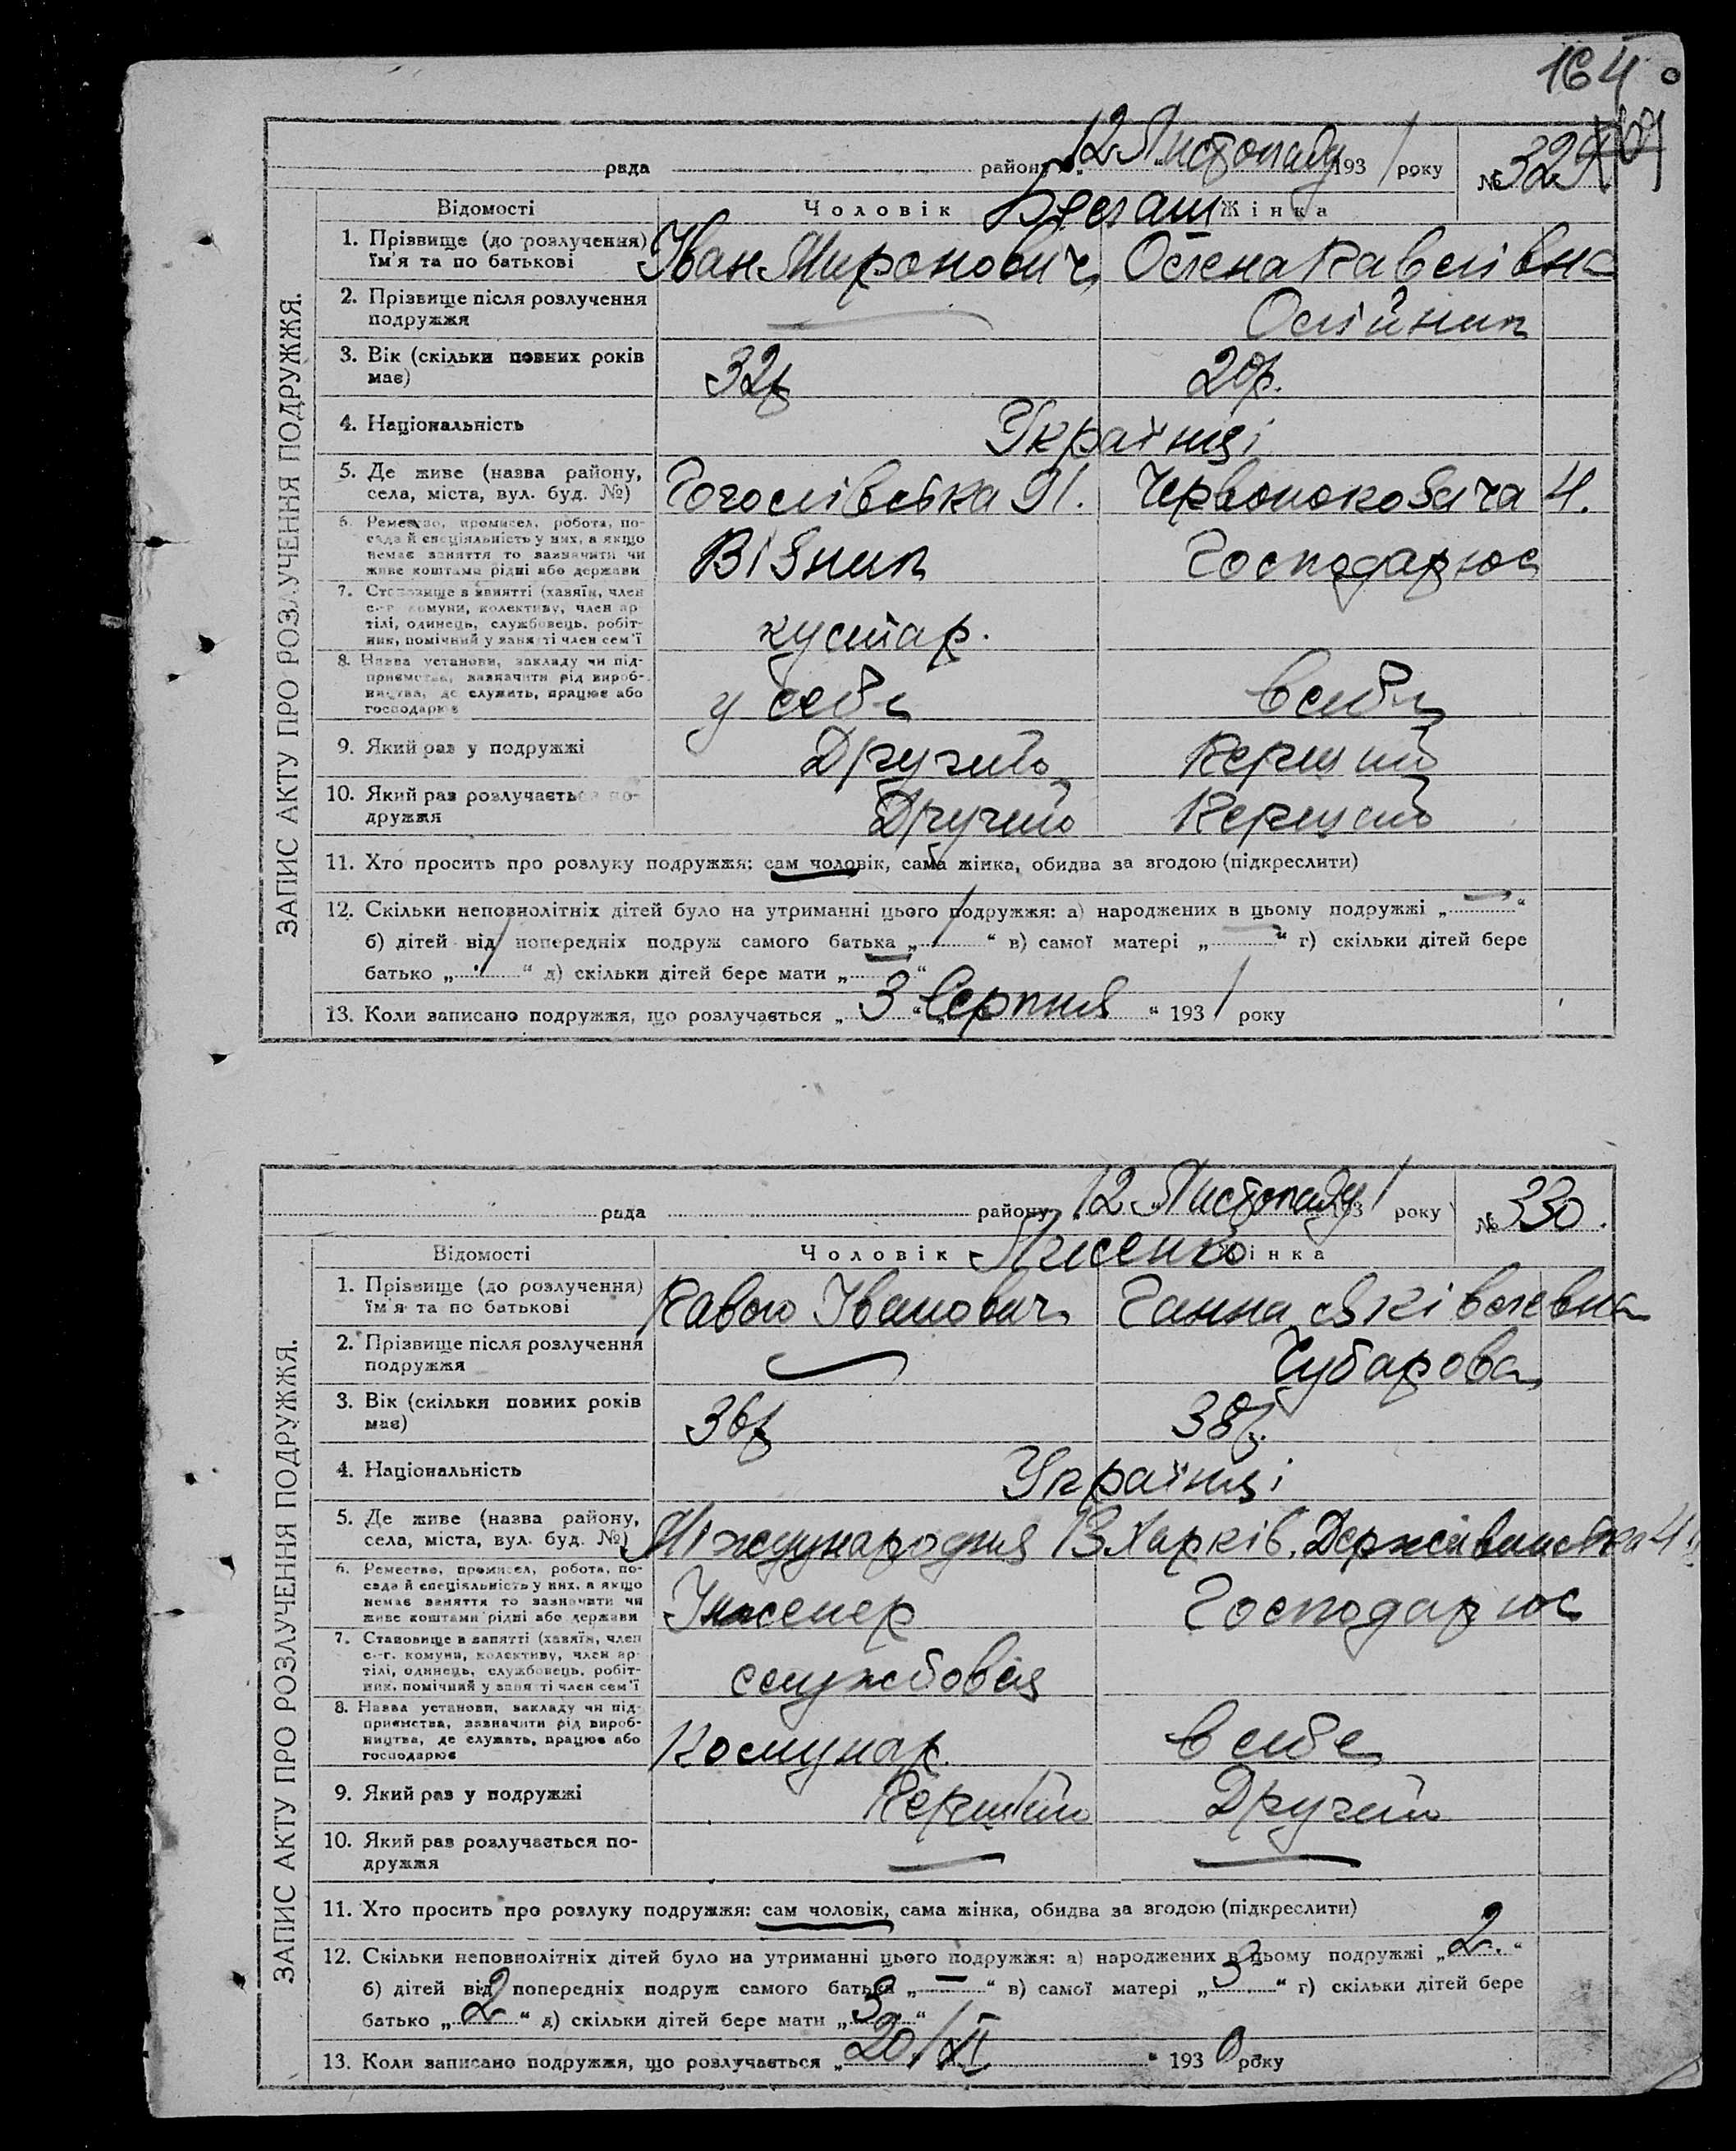 164
рада району „12 „ Листопаду 1931 року № 329
Відомості Чоловік Жінка
1. Прізвище (до розлучення) їм'я та по батькові
Іван Миронович Олена Павелівна
2. Прізвище після розлучення подружжя
Олійник
3. Вік (скільки повних років має)
32р 20р.
4. Національність
Українці
5. Де живе (назва району, села, міста, вул. буд. №)
Гоголівська 91. Червонокозача 4.
6. Ремество, промисел, робота, по-
сада й спеціяльність у них, а якщо
немає заняття то зазначити чи
живе коштами рідні або держави
Візник Господарює
7. Становище в занятті (хазяїн, член
с.-г. комуни, колективу, член ар-
тілі, одинець, службовець, робіт-
ник, помічний у занятті член сем'ї
кустар.
8. Назва установи, закладу чи під-
приємства, зазначити рід вироб-
ництва, де служить, працює або
господарює
у себе в себе
9. Який раз у подружжі
Другий Перший
10. Який раз розлучається по-
дружжя
Другий Перший
11. Хто просить про розлуку подружжя: сам чоловік, сама жінка, обидва за згодою (підкреслити)
12. Скільки неповнолітніх дітей було на утриманні цього подружжя: а) народжених в цьому подружжі „ — “
б) дітей від попередніх подруж самого батька „ 1 “ в) самої матері „ — “ г) скільки дітей бере
батько „ 1 “ д) скільки дітей бере мати „ — “
13. Коли записано подружжя, що розлучається „ 3 “ Серпня “ 1931 року
ЗАПИС АКТУ ПРО РОЗЛУЧЕННЯ ПОДРУЖЖЯ.
рада району „12 „ Листопаду 1931 року № 330.
Відомості Чоловік Лисенко Жінка
1. Прізвище (до розлучення) їм'я та по батькові
Павло Іванович Ганна Яківлевна
2. Прізвище після розлучення подружжя
Чубарова
3. Вік (скільки повних років має)
36р 38р.
4. Національність
Українці
5. Де живе (назва району, села, міста, вул. буд. №)
Міждународня 13 Харків, Державинська 4
6. Ремество, промисел, робота, по-
сада й спеціяльність у них, а якщо
немає заняття то зазначити чи
живе коштами рідні або держави
Інженер Господарює
7. Становище в занятті (хазяїн, член
с.-г. комуни, колективу, член ар-
тілі, одинець, службовець, робіт-
ник, помічний у занятті член сем'ї
службовця
8. Назва установи, закладу чи під-
приємства, зазначити рід вироб-
ництва, де служить, працює або
господарює
Комунар. в себе
9. Який раз у подружжі
Перший Другий
10. Який раз розлучається по-
дружжя
11. Хто просить про розлуку подружжя: сам чоловік, сама жінка, обидва за згодою (підкреслити)
12. Скільки неповнолітніх дітей було на утриманні цього подружжя: а) народжених в цьому подружжі „ 2. “
б) дітей від попередніх подруж самого батька „ — “ в) самої матері „ 3 “ г) скільки дітей бере
батько „ 2 “ д) скільки дітей бере мати „ 3 “
13. Коли записано подружжя, що розлучається „ 20/XI “ 1930 року
ЗАПИС АКТУ ПРО РОЗЛУЧЕННЯ ПОДРУЖЖЯ.